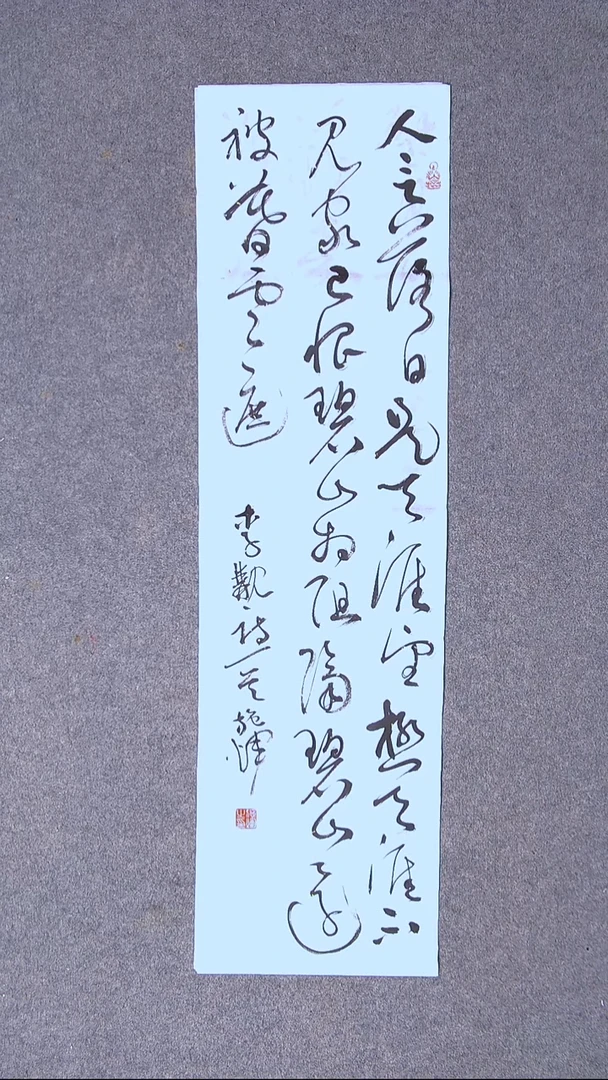 人言落日是天涯望极天涯不
见家已恨碧山相阻隔碧山还
被暮云遮
李觏诗一首